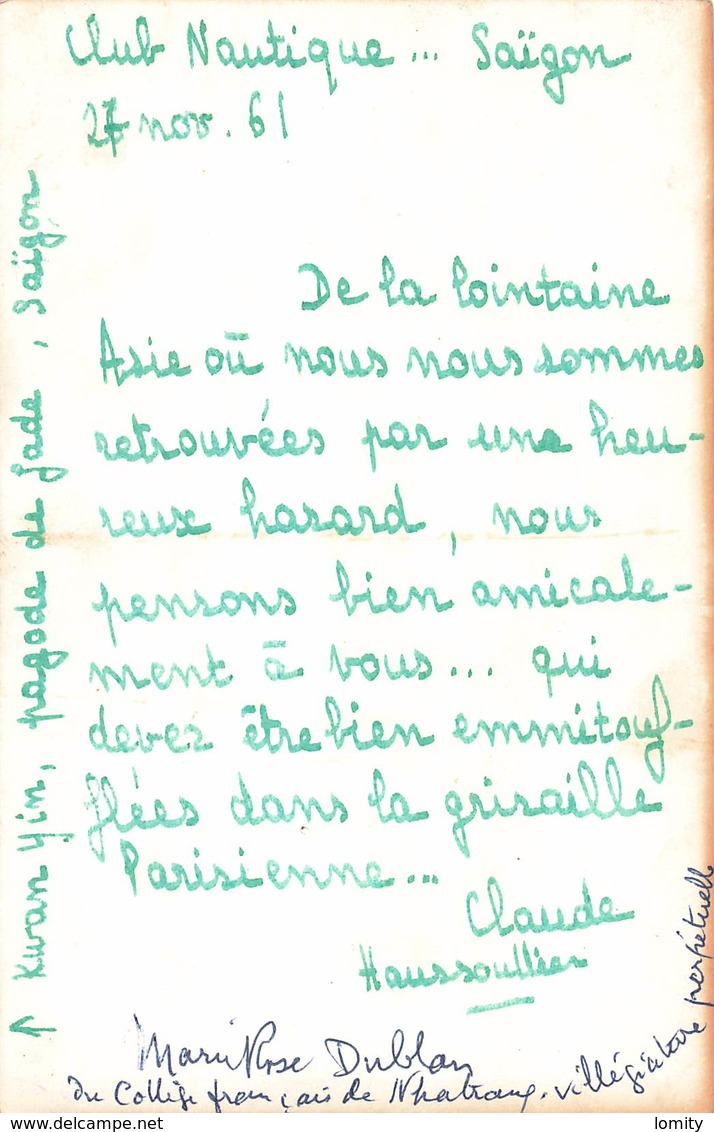 Club Nautique ... Saïgon
27 nov. 61
De la lointaine
Asie où nous nous sommes
retrouvées par une heu-
reux hasard, nous
pensons bien amicale-
ment à vous ... qui
devez être bien emmitouf-
flées dans la grisaille
Parisienne ...
Claude
Haussoullier
↑ Kwan Yin, pagode de Jade, Saïgon
Marie Rose Dublan
du Collège français de Nhatrang. villégiature perpétuelle
lomity